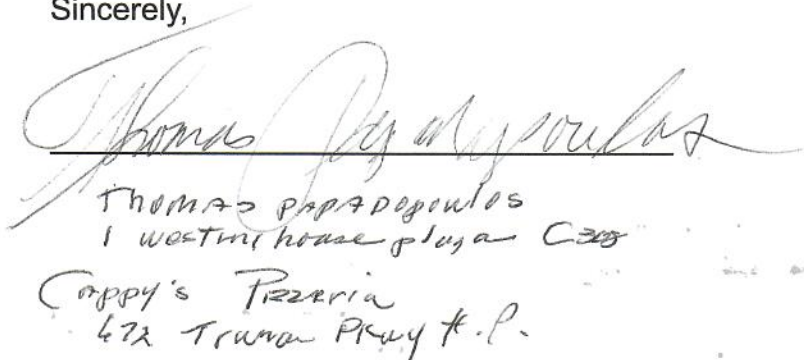 Sincerely,
Thomas Papadopoulos
Thomas PAPADOPOULOS
1 westinghouse plaza
Cappy's Pizzeria
472 Truman Pkwy H.P.